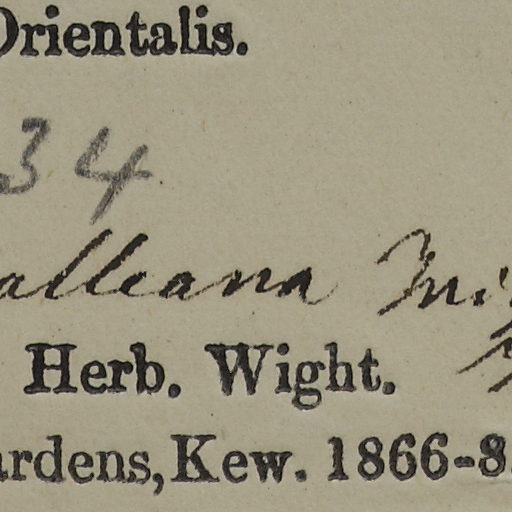 Orientalis.
34
alleana Miq
Herb. Wight.
ardens, Kew. 1866-8